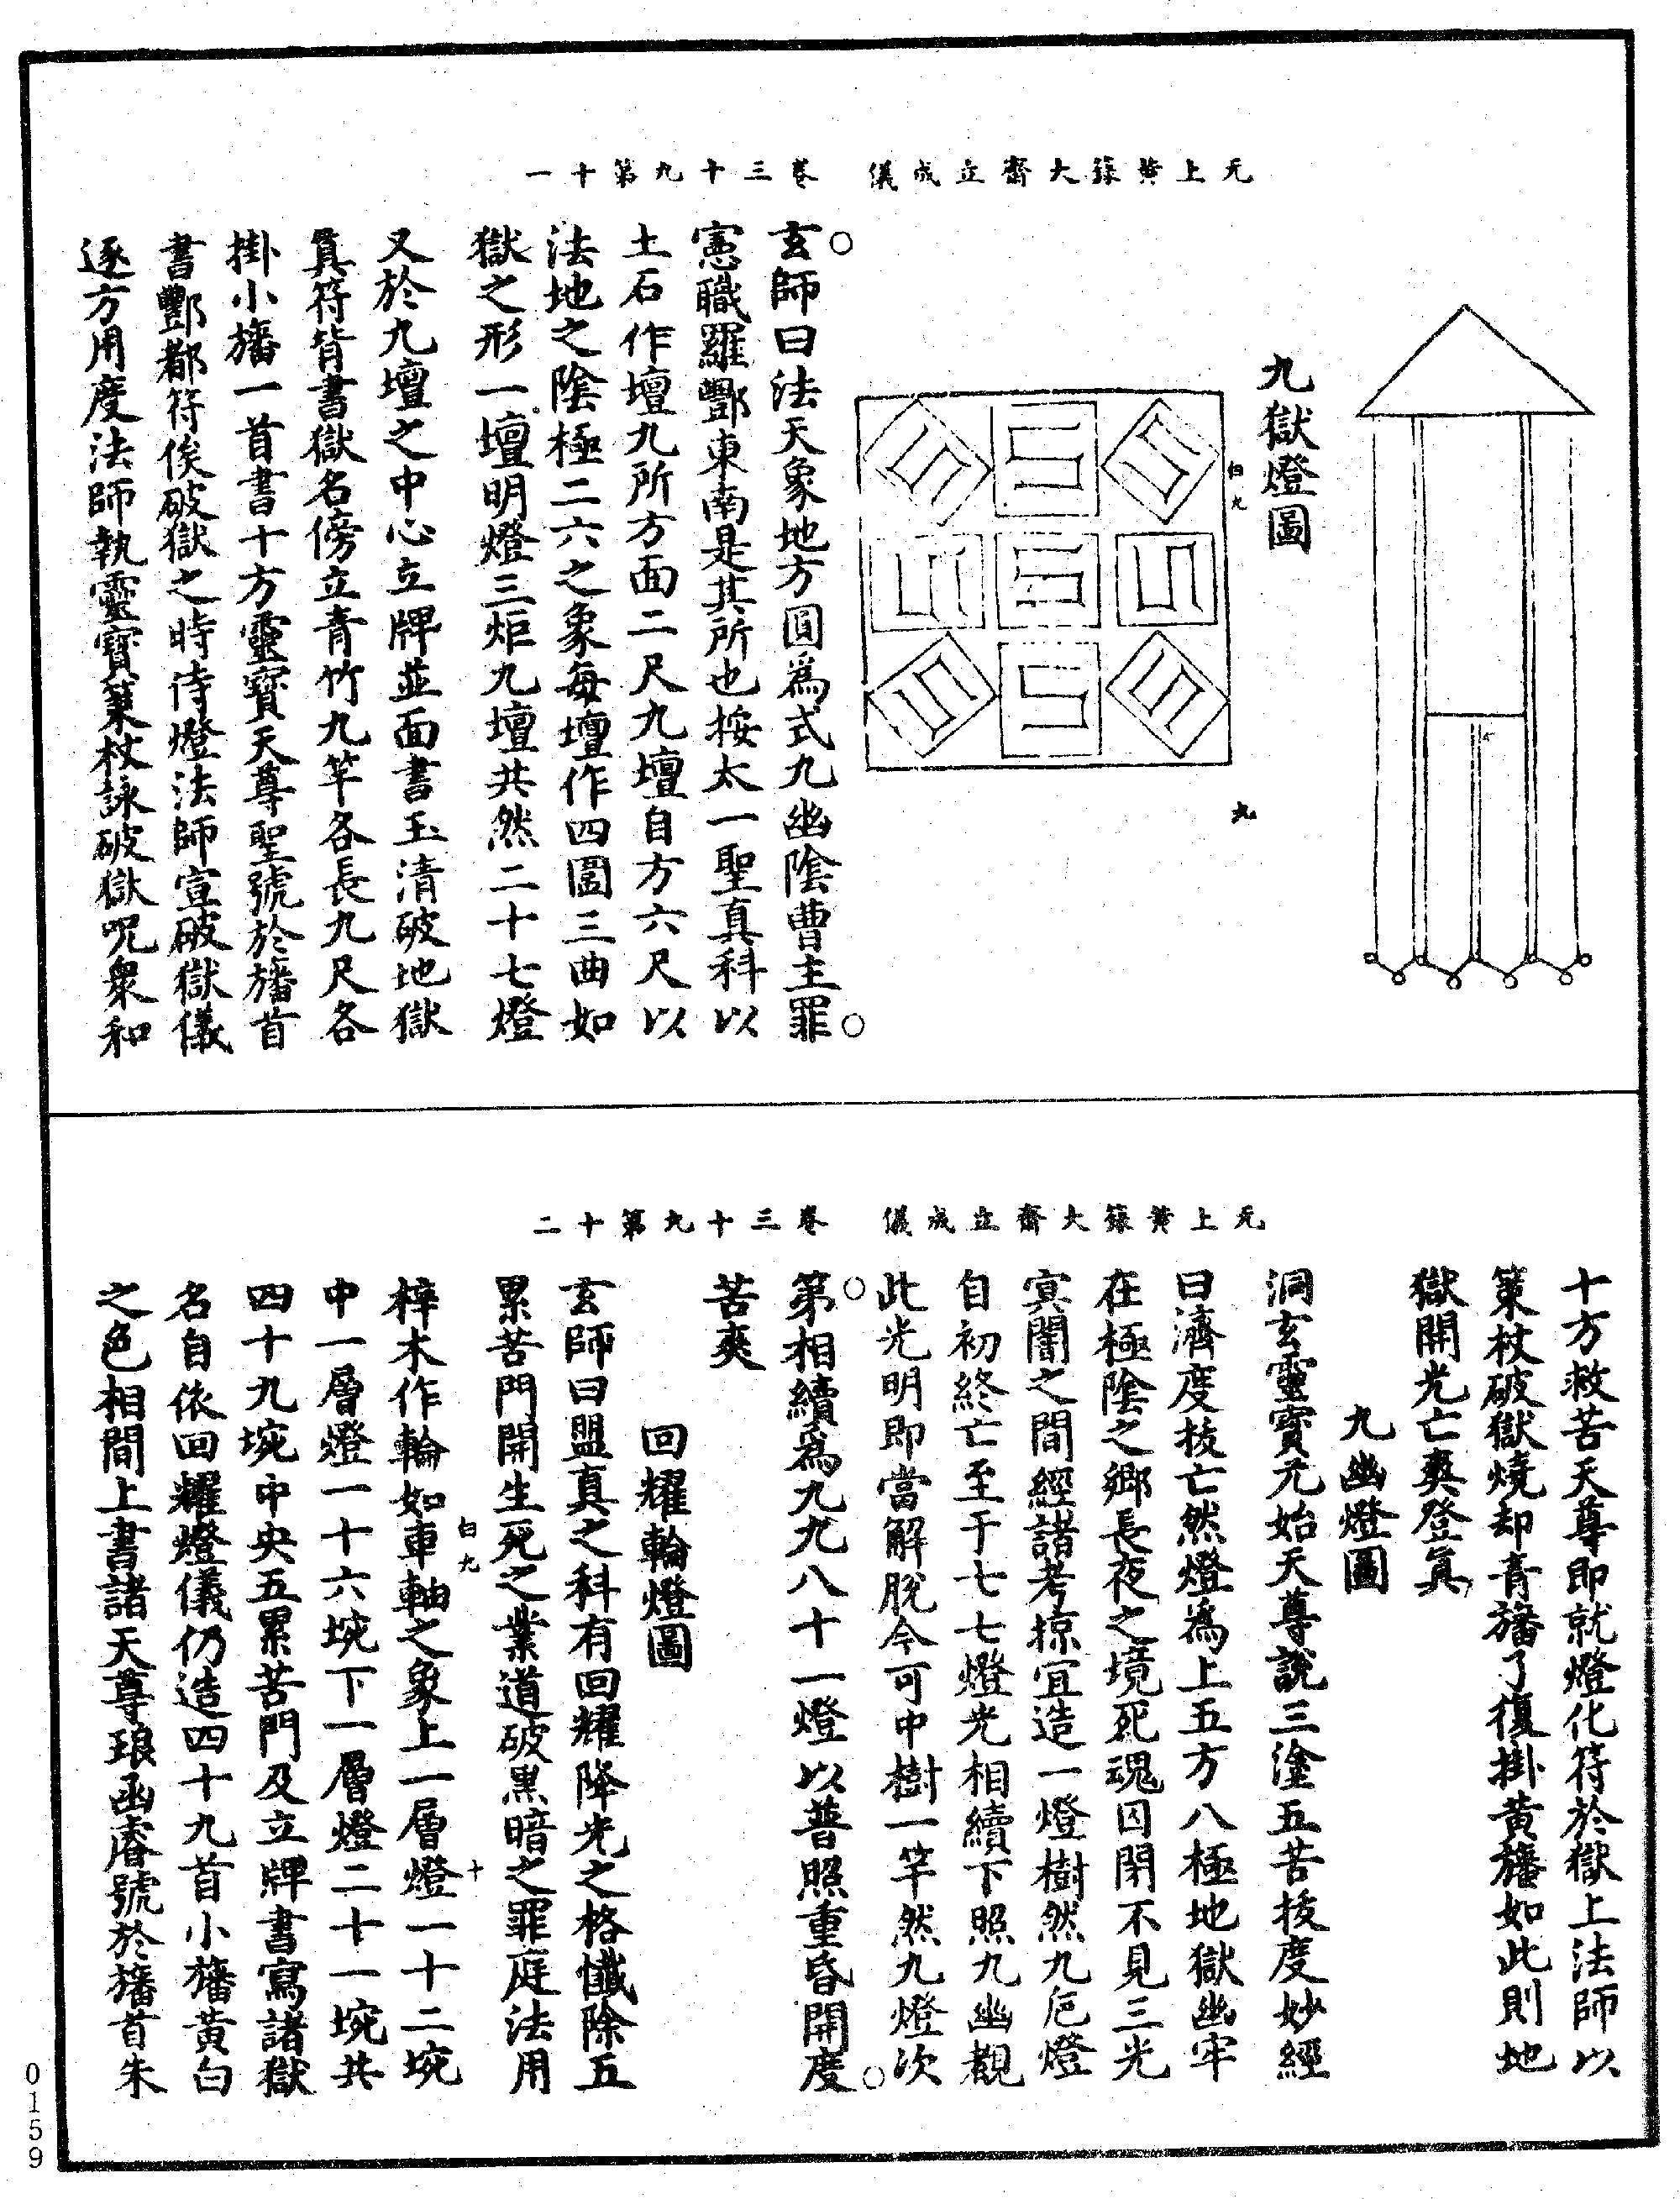 无上黃籙大齋立成儀　卷三十九第十一
九獄燈圖
白九
九
玄師曰法天象地方圓為式九幽陰曹主罪
憲職羅酆東南是其所也按太一聖真科以
土石作壇九所方面二尺九壇自方六尺以
法地之陰極二六之象每壇作四圍三曲如
獄之形一壇明燈三炬九壇共然二十七燈
又於九壇之中心立牌並面書玉清破地獄
真符背書獄名傍立青竹九竿各長九尺各
掛小旛一首書十方靈寶天尊聖號於旛首
書酆都符俟破獄之時侍燈法師宣破獄儀
逐方用度法師執靈寶策杖詠破獄呪眾和
无上黃籙大齋立成儀　卷三十九第十二
十方救苦天尊即就燈化符於獄上法師以
策杖破獄燒却青旛了復掛黃旛如此則地
獄開光亡爽登真
九幽燈圖
洞玄靈寶元始天尊說三塗五苦拔度妙經
曰濟度拔亡然燈為上五方八極地獄幽牢
在極陰之鄉長夜之境死魂囚閉不見三光
冥闇之間經諸考掠宜造一燈樹然九巵燈
自初終亡至于七七燈光相續下照九幽覩
此光明即當解脫今可中樹一竿然九燈次
第相續為九九八十一燈以普照重昏開度
苦爽
回耀輪燈圖
玄師曰盟真之科有回耀降光之格懺除五
累苦門開生死之業道破黑暗之罪庭法用
白九
十
梓木作輪如車軸之象上一層燈一十二垸
中一層燈一十六垸下一層燈二十一垸共
四十九垸中央五累苦門及立牌書寫諸獄
名自依回耀燈儀仍造四十九首小旛黃白
之色相間上書諸天尊琅函睿號於旛首朱
0159